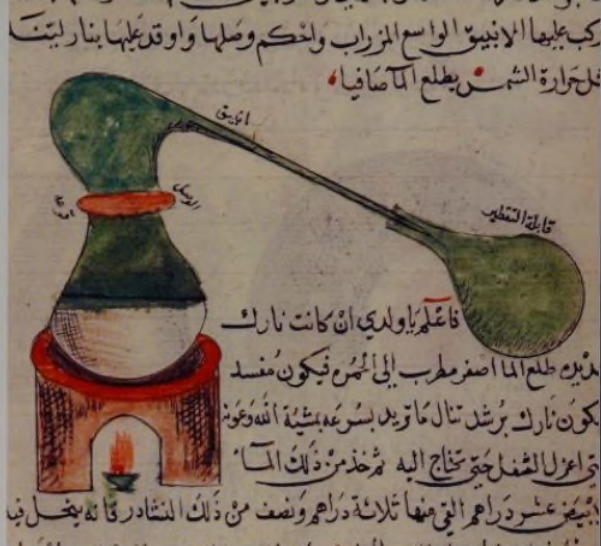 ركب عليها الانبيق الواسع المزراب واحكم وصلها واوقد عليها بنار لينة
حرارة الشمس يطلع الما صافيا
انبيق
الوصل
قابلة التقطير
فاعلم يا ولدي ان كانت نارك
طلع الما اصفر مطرب الى الحمره فيكون مفسد
يكون نارك برشد تنال ما تريد بسرعه بمشية الله وعونه
اعزل الثفل حتى تحتاج اليه ثم خذ من ذلك الما
الابيض عشر دراهم القي منها ثلاثة دراهم ونصف من ذلك النشادر فانه ينحل فيه